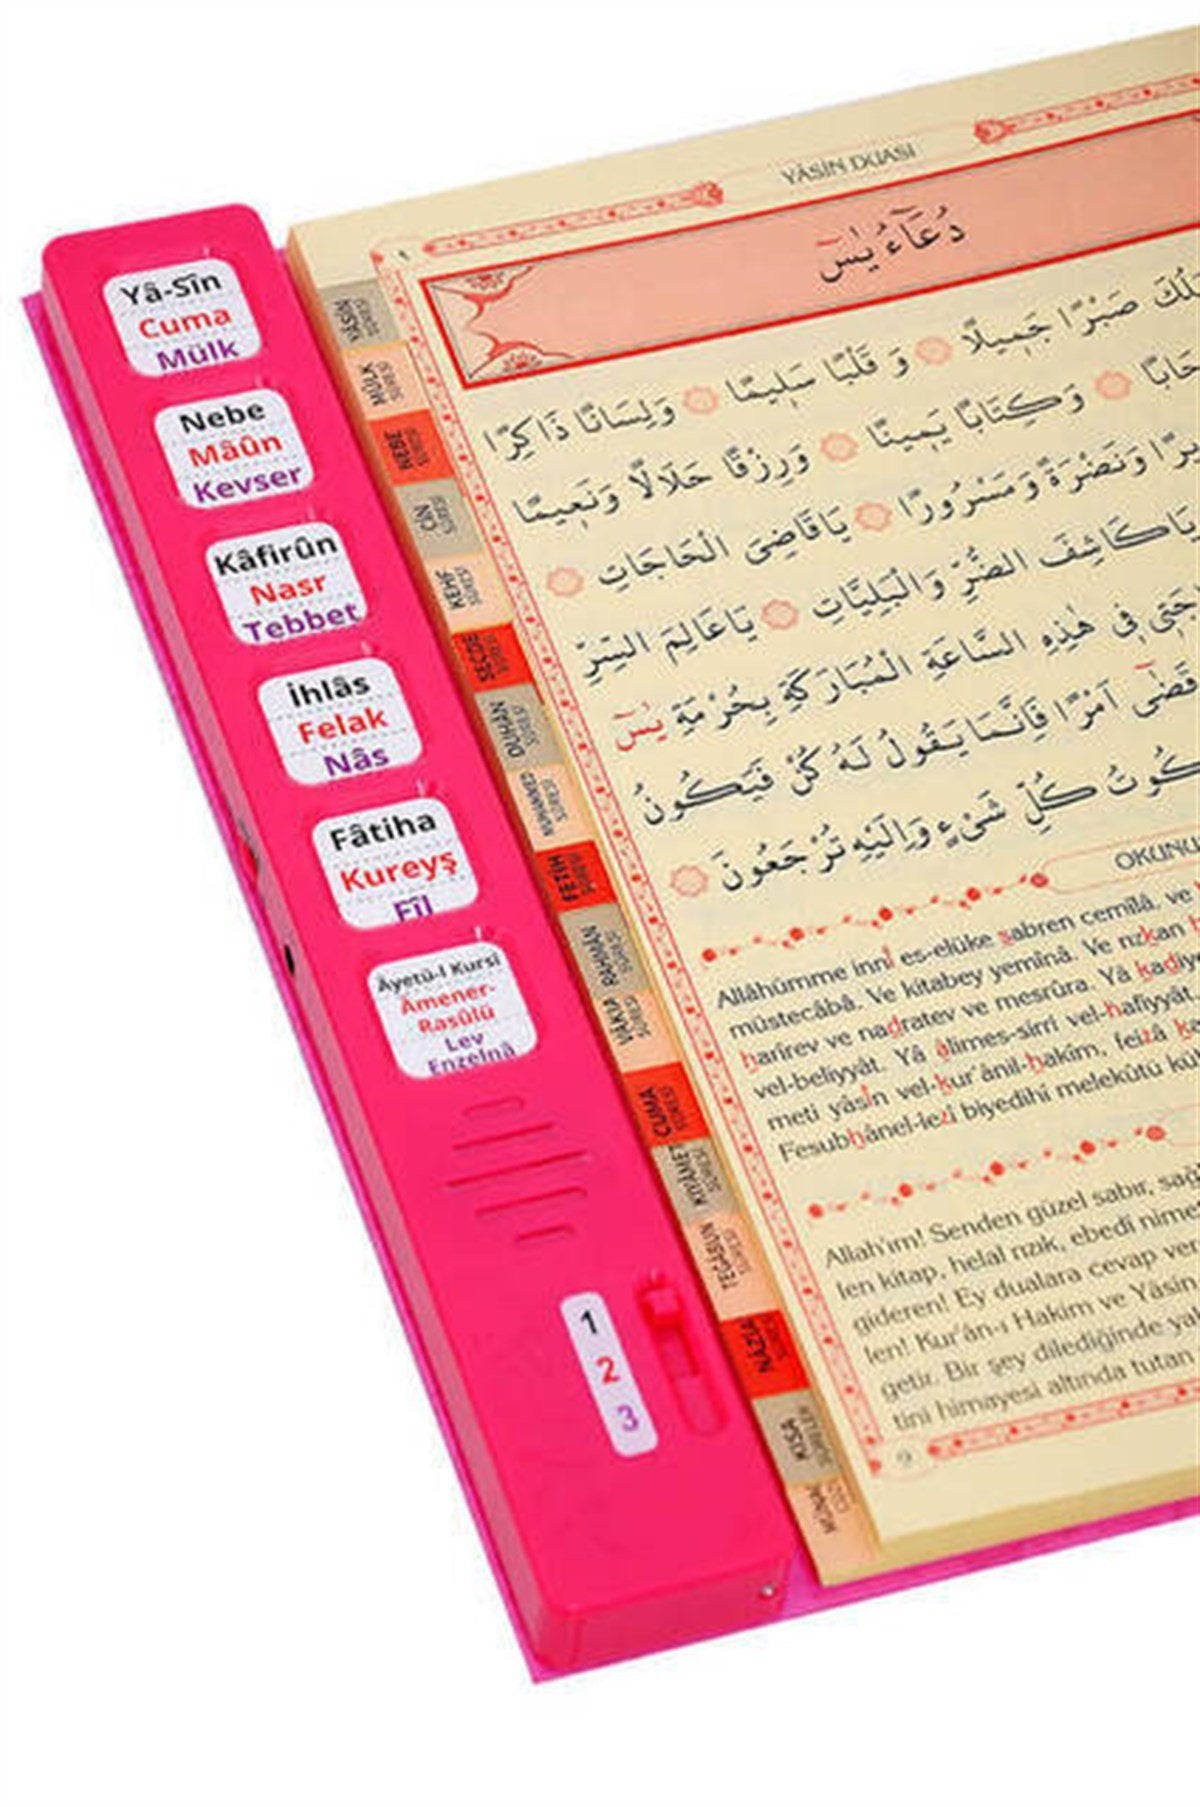 Yâ-Sîn
Cuma
Mülk
Nebe
Mâûn
Kevser
Kâfirûn
Nasr
Tebbet
İhlâs
Felak
Nâs
Fâtiha
Kureyş
Fîl
Âyetü-l Kursî
Âmener-
Rasûlü
Lev
Enzelnâ
1
2
3
YÂSİN
SÛRESİ
MÜLK
SÛRESİ
NEBE
SÛRESİ
CİN
SÛRESİ
KEHF
SÛRESİ
SECDE
SÛRESİ
DUHÂN
SÛRESİ
MUHAMMED
SÛRESİ
FETİH
SÛRESİ
RAHMÂN
SÛRESİ
VÂKIA
SÛRESİ
CUMA
SÛRESİ
KIYÂMET
SÛRESİ
TEGÂBUN
SÛRESİ
NÂZİA
SÛRESİ
KISA
SÛRELER
YÂSİN DUASI
دُعَاءُ يٰسٓ
صَبْرًا جَمِيلًا وَ قَلْبًا سَلِيمًا وَلِسَانًا ذَاكِرًا
وَكِتَابًا يَمِينًا وَرِزْقًا حَلَالًا وَنَعِيمًا
وَنَضْرَةً وَمَسْرُورًا يَاقَاضِىَ الْحَاجَاتِ
يَاكَاشِفَ الضُّرِّ وَالْبَلِيَّاتِ يَاعَالِمَ السِّرِّ
فِى هٰذِهِ السَّاعَةِ الْمُبَارَكَةِ بِحُرْمَةِ يٰسٓ
قَضٰٓى اَمْرًا فَاِنَّمَا يَقُولُ لَهُ كُنْ فَيَكُونُ
كُلِّ شَىْءٍ وَاِلَيْهِ تُرْجَعُونَ
Allâhümme innî es-elüke sabren cemîlâ, ve
müstecâbâ. Ve kitabey yemînâ. Ve rızkan
harîrev ve nadratev ve mesrûra. Yâ kadiye
vel-beliyyât. Yâ âlimes-sirri vel-hafiyyât
meti yâsîn vel-kur'ânil-hakîm, feizâ
Fesubhânel-lezî biyedihî melekûtü
Allah'ım! Senden güzel sabır,
len kitap, helal rızık, ebedî
gideren! Ey dualara cevap
len! Kur'ân-ı Hakîm ve Yâsîn
getir. Bir şey dilediğinde
tini himayesi altında tutan
9